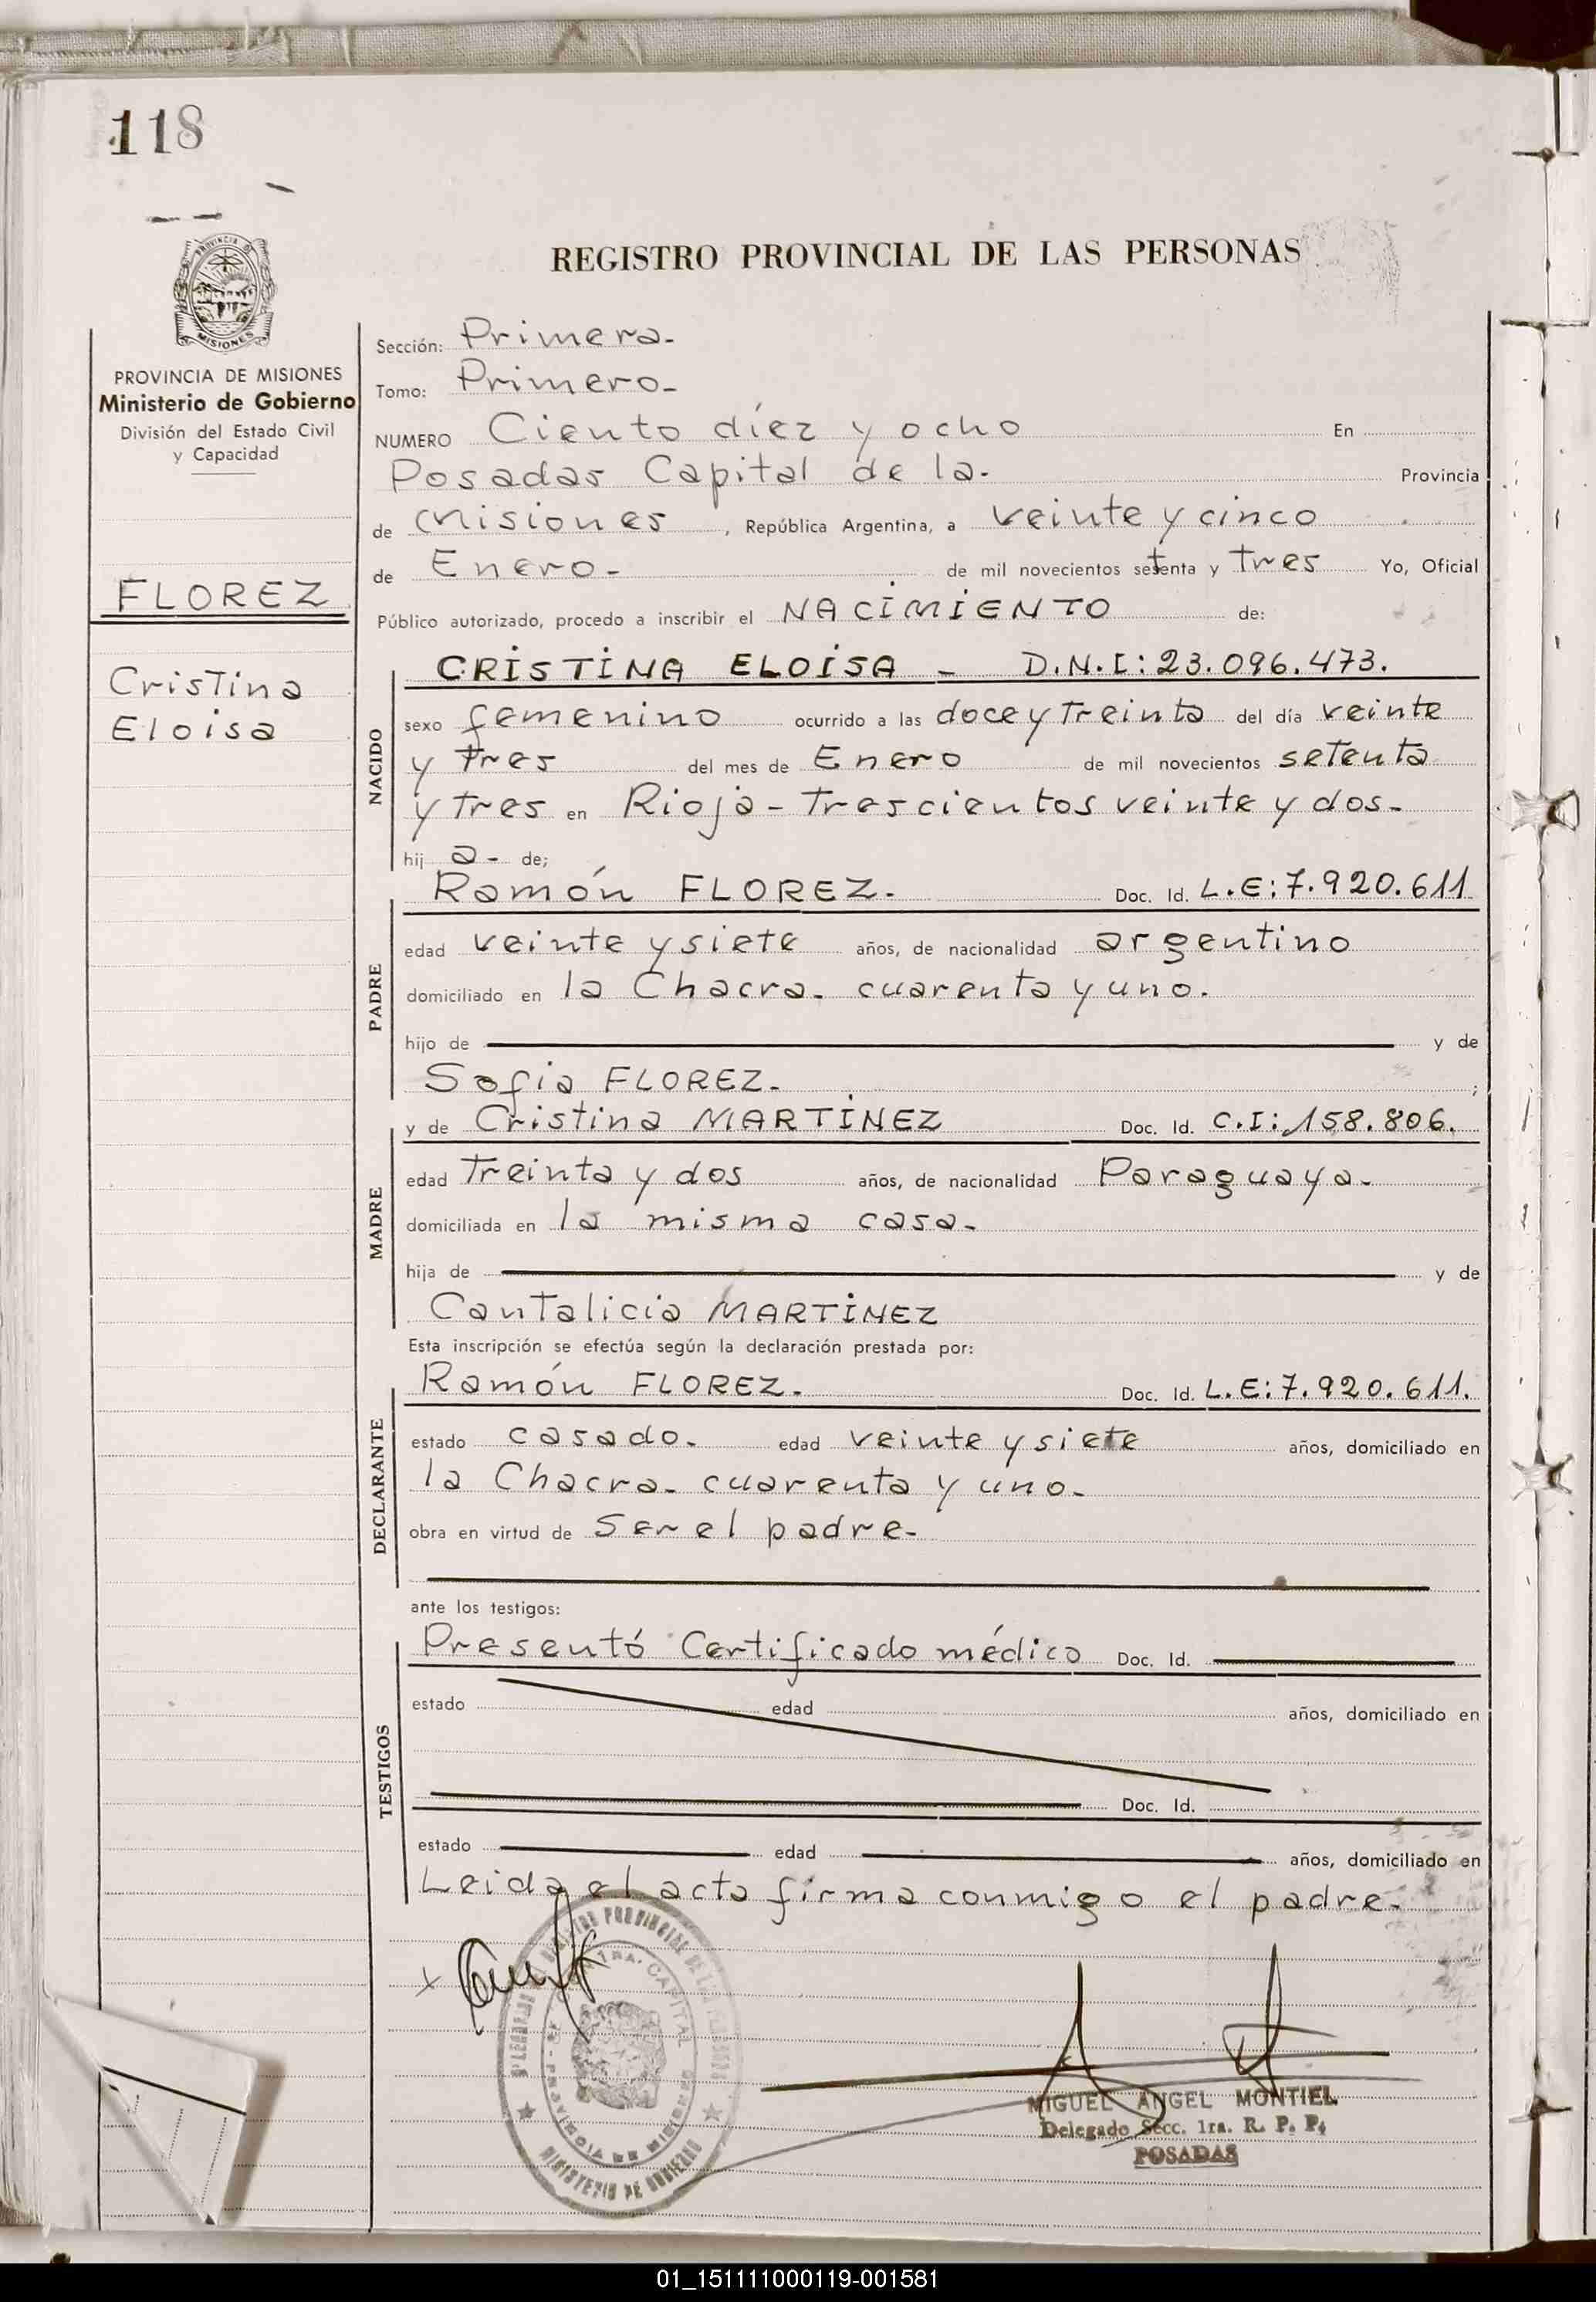 118
PROVINCIA DE
MISIONES
PROVINCIA DE MISIONES
Ministerio de Gobierno
División del Estado Civil
y Capacidad
FLOREZ
Cristina
Eloisa
REGISTRO PROVINCIAL DE LAS PERSONAS
Sección: Primera-
Tomo: Primero-
NUMERO Ciento díez y ocho En
Posadas Capital de la- Provincia
de Misiones, República Argentina, a veinte y cinco
de Enero- de mil novecientos setenta y tres Yo, Oficial
Público autorizado, procedo a inscribir el NACIMIENTO de:
NACIDO
CRISTINA ELOISA - D.N.I: 23.096.473.
sexo femenino ocurrido a las doce y treinta del día veinte
y tres del mes de Enero de mil novecientos setenta
y tres en Rioja - trescientos veinte y dos-
hij a- de;
PADRE
Ramón FLOREZ- Doc. Id. L.E: 7.920.611
edad veinte y siete años, de nacionalidad argentino
domiciliado en la Chacra- cuarenta y uno.
hijo de y de
Sofia FLOREZ- ;
MADRE
y de Cristina MARTINEZ Doc. Id. C.I: 158.806.
edad treinta y dos años, de nacionalidad Paraguaya-
domiciliada en la misma casa-
hija de y de
Cantalicia MARTINEZ
Esta inscripción se efectúa según la declaración prestada por:
DECLARANTE
Ramón FLOREZ. Doc. Id. L.E: 7.920.611.
estado casado. edad veinte y siete años, domiciliado en
la Chacra- cuarenta y uno-
obra en virtud de Ser el padre-
ante los testigos:
TESTIGOS
Presentó Certificado médico Doc. Id.
estado edad años, domiciliado en
Doc. Id.
estado edad años, domiciliado en
Leida el acta firma conmigo el padre-
x
REGISTRO PROVINCIAL DE LAS PERSONAS
1RA. CAPITAL
PROVINCIA DE MISIONES
MINISTERIO DE GOBIERNO
MIGUEL ANGEL MONTIEL
Delegado Secc. 1ra. R. P. P.
POSADAS
01_151111000119-001581